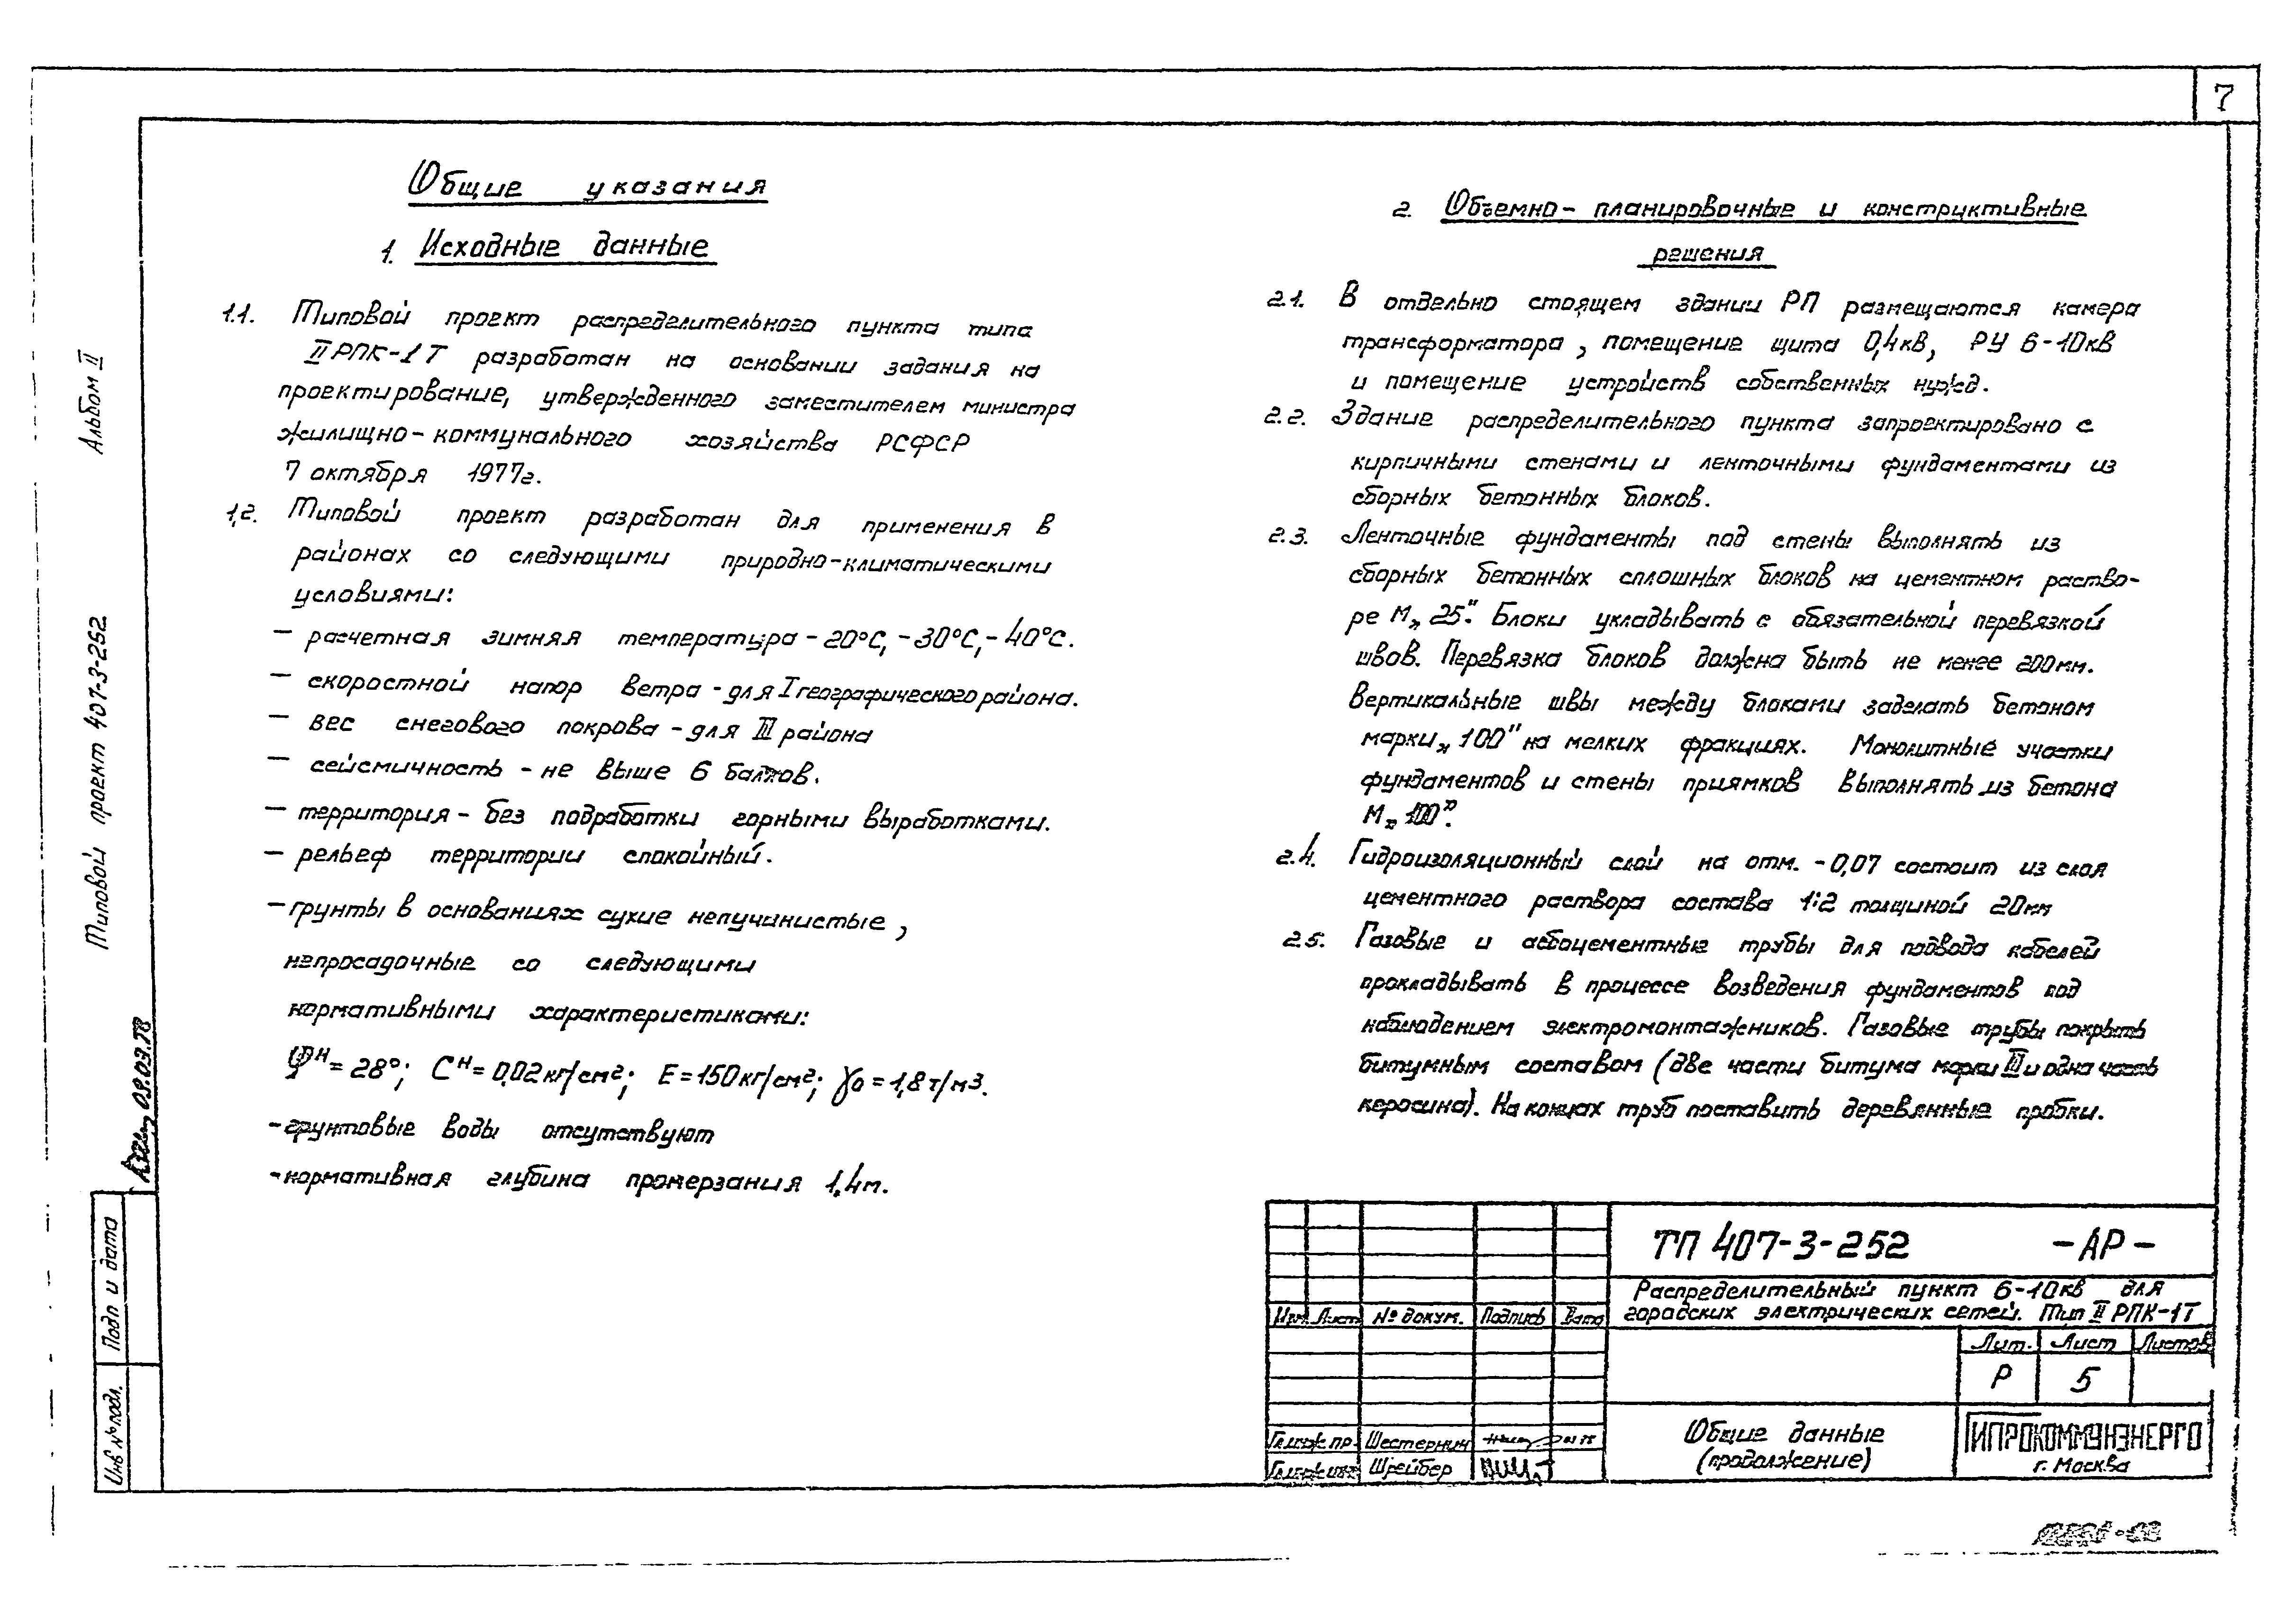 7
Общие указания
1. Исходные данные
1.1. Типовой проект распределительного пункта типа
II РПК-1Т разработан на основании задания на
проектирование, утвержденного заместителем министра
жилищно-коммунального хозяйства РСФСР
7 октября 1977г.
1,2. Типовой проект разработан для применения в
районах со следующими природно-климатическими
условиями:
— расчетная зимняя температура -20°С, -30°С, -40°С.
— скоростной напор ветра - для I географического района.
— вес снегового покрова - для III района
— сейсмичность - не выше 6 баллов.
— территория - без подработки горными выработками.
— рельеф территории спокойный.
- грунты в основаниях сухие непучинистые,
непросадочные со следующими
нормативными характеристиками:
φн = 28°; Сн = 0,02 кг/см²; Е = 150 кг/см²; γо = 1,8 т/м3.
- грунтовые воды отсутствуют
- нормативная глубина промерзания 1,4м.
2. Объемно-планировочные и конструктивные
решения
2.1. В отдельно стоящем здании РП размещаются камера
трансформатора, помещение щита 0,4кВ, РУ 6-10кВ
и помещение устройств собственных нужд.
2.2. Здание распределительного пункта запроектировано с
кирпичными стенами и ленточными фундаментами из
сборных бетонных блоков.
2.3. Ленточные фундаменты под стены выполнять из
сборных бетонных сплошных блоков на цементном раство-
ре М„25". Блоки укладывать с обязательной перевязкой
швов. Перевязка блоков должна быть не менее 200мм.
Вертикальные швы между блоками заделать бетоном
марки „100" на мелких фракциях. Монолитные участки
фундаментов и стены приямков выполнять из бетона
М„100".
2.4. Гидроизоляционный слой на отм. -0,07 состоит из слоя
цементного раствора состава 1:2 толщиной 20мм
2.5. Газовые и асбоцементные трубы для подвода кабелей
прокладывать в процессе возведения фундаментов под
наблюдением электромонтажников. Газовые трубы покрыть
битумным составом (две части битума марки III и одна часть
керосина). На концах труб поставить деревянные пробки.
Альбом II
Типовой проект 407-3-252
09.03.78
Подп и дата
Инв № подл.
ТП 407-3-252 -АР-
Распределительный пункт 6-10кв для
городских электрических сетей. Тип II РПК-1Т
Изм. Лист № докум. Подпись Дата
Лит. Лист Листов
Р 5
Гл.инж.пр. Шестернин
Шрейбер
Общие данные
(продолжение)
ГИПРОКОММУНЭНЕРГО
г. Москва